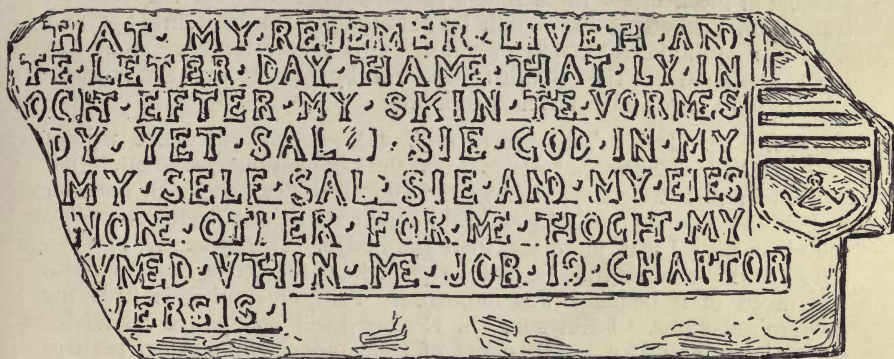 HAT · MY · REDEMER · LIVETH AND
THE · LETER · DAY · THAME · THAT · LY · IN
OCH · EFTER · MY · SKIN · THE · VORMES
DY · YET · SAL I · SIE · GOD · IN · MY
MY · SELF · SAL · SIE · AND · MY · EIES
NONE · OTHER · FOR · ME · THOCHT · MY
VMED · VTHIN · ME · JOB · 19 · CHAPTOR
VERSIS ·